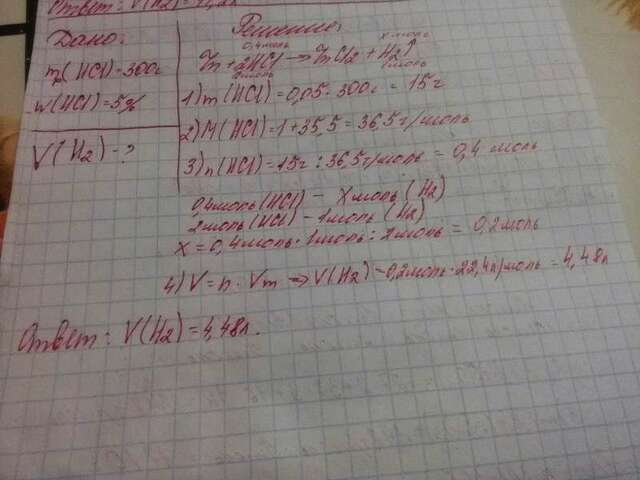 Ответ: V(H2)=
Дано:
mр(HCl)=300г
w(HCl)=5%
V(H2)-?
Решение:
0,4моль х моль
Zn+2HCl→ZnCl2+H2↑
2моль 1моль
1) m(HCl)=0,05·300г=15г
2) M(HCl)=1+35,5=36,5г/моль
3) n(HCl)=15г:36,5г/моль=0,4 моль
0,4моль(HCl)-Xмоль(H2)
2моль(HCl)-1моль(H2)
X=0,4моль·1моль:2моль=0,2моль
4) V=n·Vm⇒V(H2)=0,2моль·22,4л/моль=4,48л
Ответ: V(H2)=4,48л.